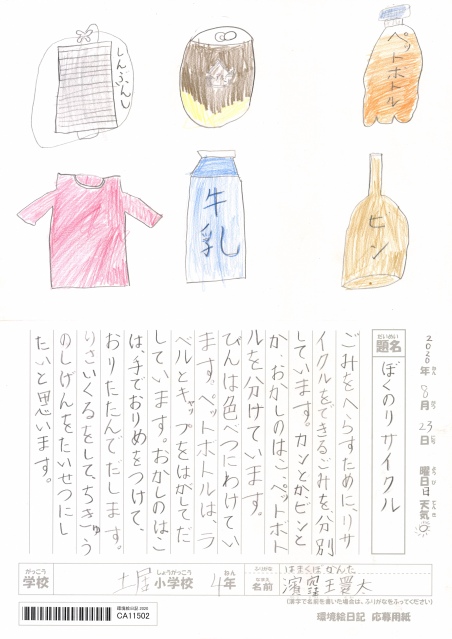 しんぶんし
ペットボトル
牛乳
ビン
2020年 8月 23日 曜日日 天気
ねん がつ にち ようび てんき
だいめい
題名
ぼくのリサイクル
ごみをへらすために、リサ
イクルをできるごみを分別
しています。カンとか、ビンと
か、おかしのはこ、ペットボト
ルを分けています。
びんは色べつにわけてい
ます。ペットボトルは、ラ
ベルとキャップをはがしてだ
しています。おかしのはこ
は、手でおりめをつけて、
おりたたんでだします。
りさいくるをして、ちきゅう
のしげんをたいせつにし
たいと思います。
がっこう
学校
土居
しょうがっこう
小学校
4
ねん
年
ふりがな
はまくぼかんた
なまえ
名前
(漢字で名前を書いた場合は、ふりがなをふってください)
環境絵日記 2020
CA11502
環境絵日記 応募用紙